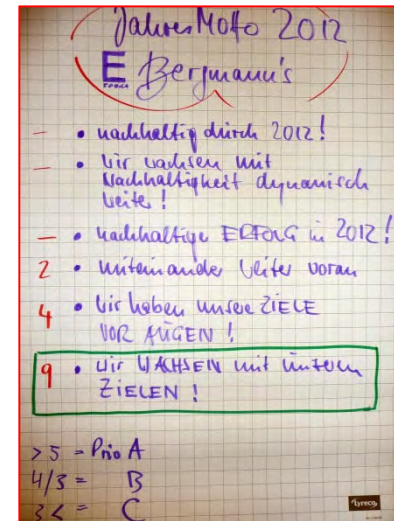 JahresMotto 2012
E Bergmann's
– • nachhaltig durch 2012!
– • Wir wachsen mit
Nachhaltigkeit dynamisch
weiter!
– • nachhaltige ERFOLG in 2012!
2 • miteinander weiter voran
4 • Wir haben unsere ZIELE
VOR AUGEN!
9 • Wir WACHSEN mit unseren
ZIELEN!
> 5 = Prio A
4/3 = B
3 < = C
lyreco